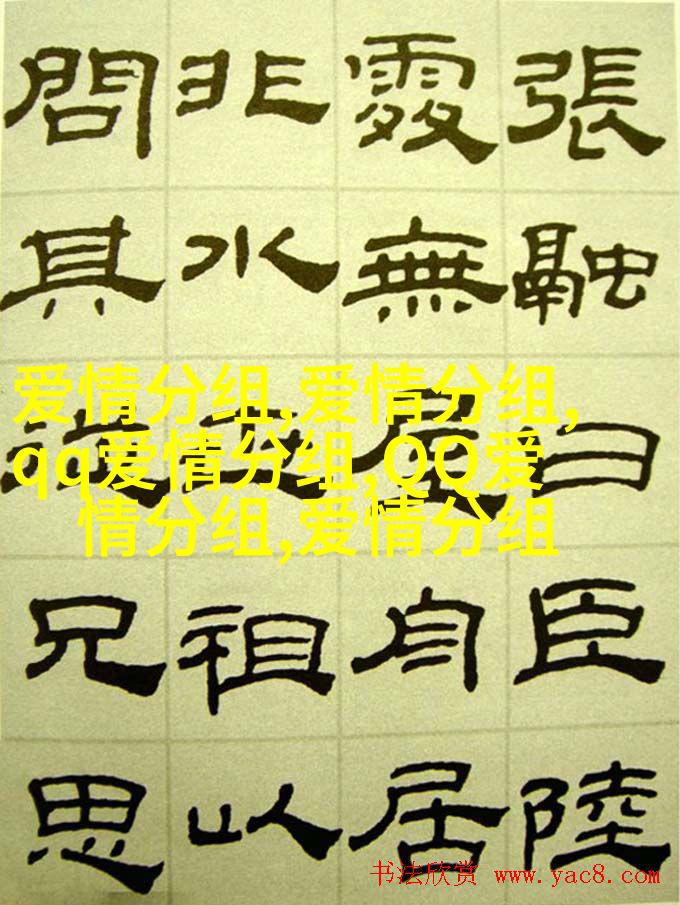 張融曰臣陸
處無屋舟居
非水祖以
問其兄思
爱情分组,爱情分组,
qq爱情分组,QQ爱
情分组,爱情分组
书法欣赏 www.yac8.com